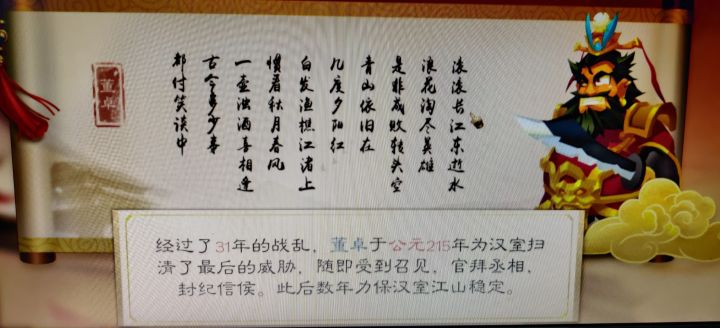 滚滚长江东逝水
浪花淘尽英雄
是非成败转头空
青山依旧在
几度夕阳红
白发渔樵江渚上
惯看秋月春风
一壶浊酒喜相逢
古今多少事
都付笑谈中
董卓
经过了31年的战乱，董卓于公元215年为汉室扫
清了最后的威胁，随即受到召见，官拜丞相，
封纪信侯。此后数年力保汉室江山稳定。